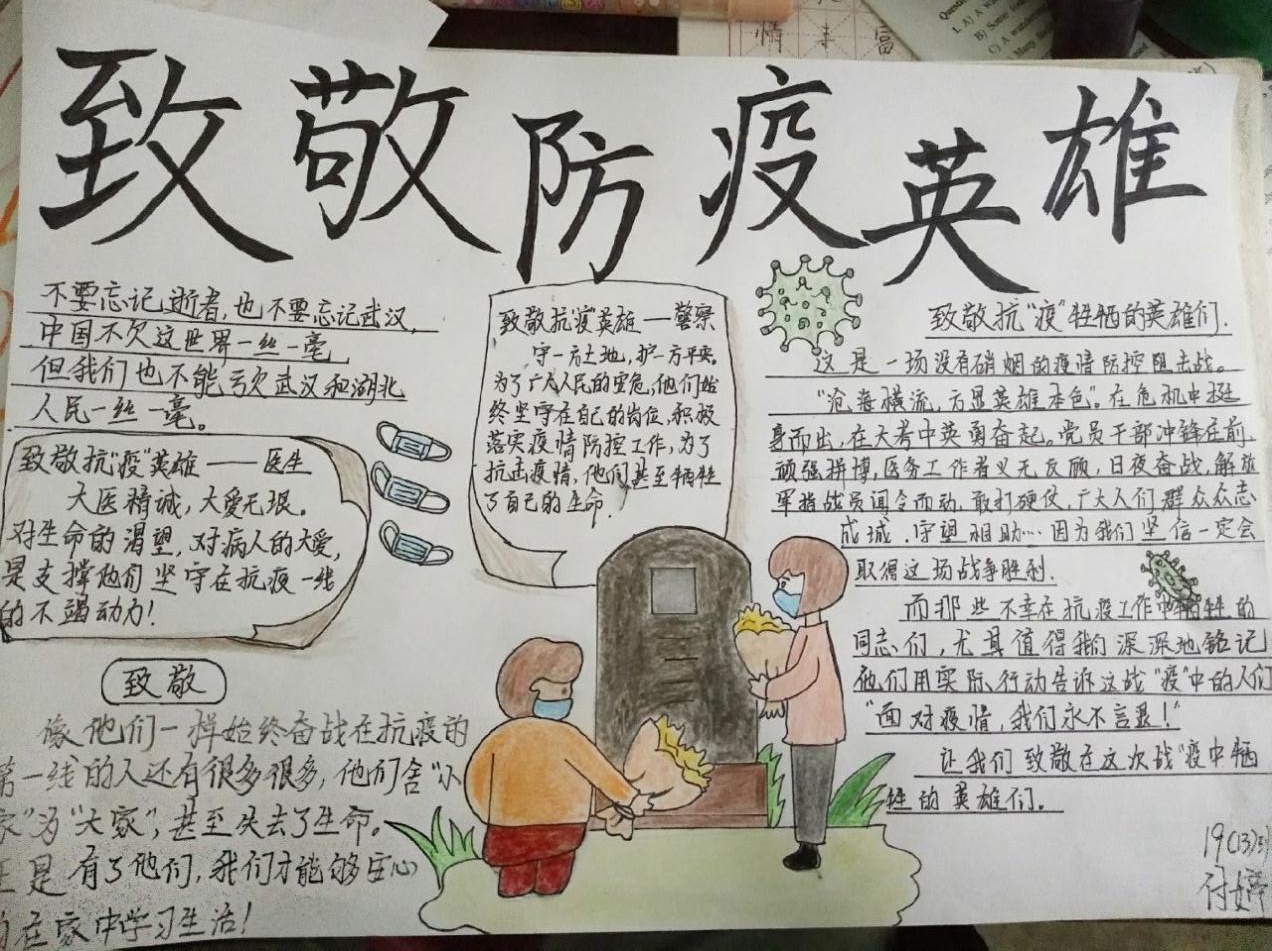 致敬防疫英雄
不要忘记逝者,也不要忘记武汉,
中国不欠这世界一丝一毫
但我们也不能亏欠武汉和湖北
人民一丝一毫。
致敬抗“疫”英雄——医生
大医精诚,大爱无垠。
对生命的渴望,对病人的大爱,
是支撑他们坚守在抗疫一线
的不竭动力!
致敬
像他们一样始终奋战在抗疫的
第一线的人还有很多很多,他们舍“小
家”为“大家”,甚至失去了生命。
正是有了他们,我们才能够安心
的在家中学习生活!
致敬抗“疫”英雄——警察
守一方土地,护一方平安。
为了广大人民的安危,他们始
终坚守在自己的岗位,积极
落实疫情防控工作,为了
抗击疫情,他们甚至牺牲
了自己的生命!
致敬抗“疫”牺牲的英雄们.
这是一场没有硝烟的疫情防控阻击战。
“沧海横流,方显英雄本色”。在危机中挺
身而出,在大考中英勇奋起。党员干部冲锋在前,
顽强拼搏,医务工作者义无反顾,日夜奋战,解放
军指战员闻令而动,敢打硬仗,广大人们群众众志
成城,守望相助…因为我们坚信一定会
取得这场战争胜利.
而那些不幸在抗疫工作中牺牲的
同志们,尤其值得我们深深地铭记
他们用实际行动告诉这战“疫”中的人们
“面对疫情,我们永不言退!”
让我们致敬在这次战“疫中牺
牲的英雄们。
19(13)
付婷
情 丰 富